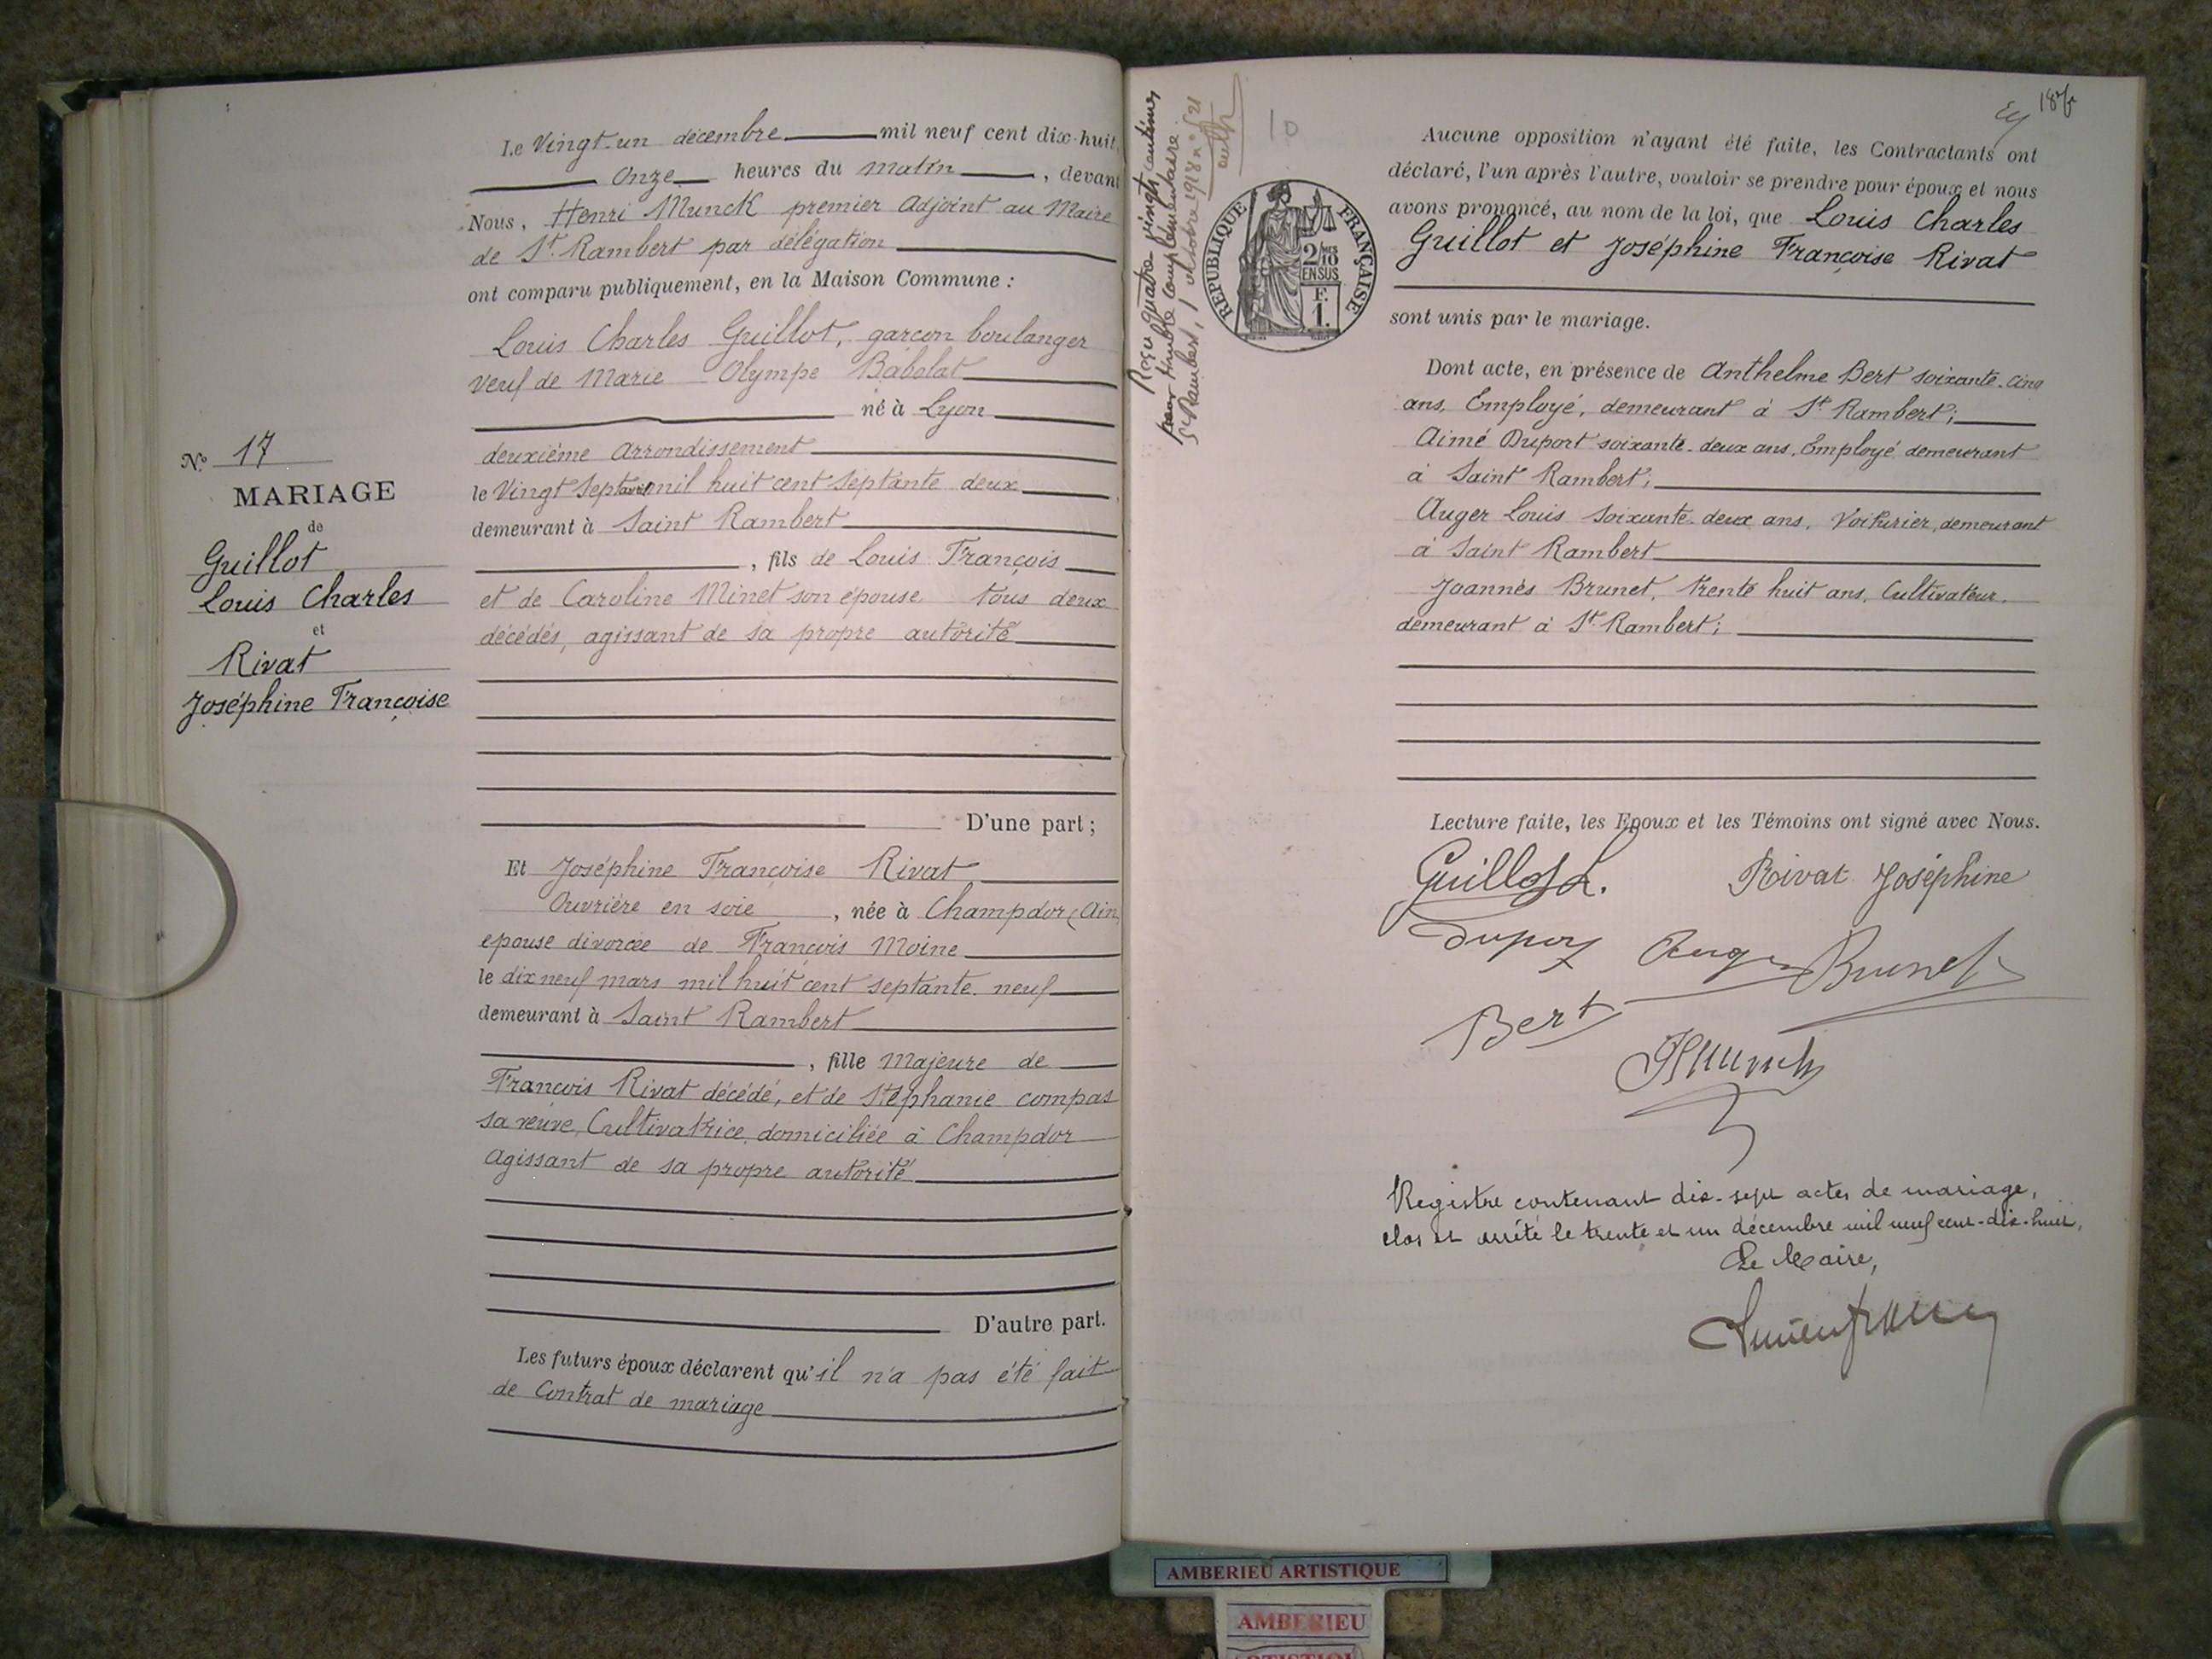 Le Vingt-un décembre mil neuf cent dix-huit,
Onze heures du Matin, devant
Nous, Henri Munck premier Adjoint au Maire
de St. Rambert par délégation
ont comparu publiquement, en la Maison Commune :
Louis Charles Guillot, garçon boulanger
veuf de Marie Olympe Babolat
né à Lyon
deuxième Arrondissement
le Vingt Sept avril mil huit cent septante deux
demeurant à Saint Rambert
, fils de Louis François
et de Caroline Minet son épouse tous deux
décédés, agissant de sa propre autorité
D'une part ;
N° 17
MARIAGE
de
Guillot
Louis Charles
et
Rivat
Joséphine Françoise
Et Joséphine Françoise Rivat
Ouvrière en soie, née à Champdor (Ain
épouse divorcée de François Moine
le dix neuf mars mil huit cent septante neuf
demeurant à Saint Rambert
, fille Majeure de
François Rivat décédé, et de Stéphanie compas
sa veuve, Cultivatrice domiciliée à Champdor
Agissant de sa propre autorité
D'autre part.
Les futurs époux déclarent qu'il n'a pas été fait
de Contrat de mariage
Reçu quatre-vingts centimes
pour timbre complémentaire
St Rambert, 1 octobre 1918 n° 21
10
RÉPUBLIQUE FRANÇAISE
2/10
EN SUS
F.
1.
Aucune opposition n'ayant été faite, les Contractants ont
déclaré, l'un après l'autre, vouloir se prendre pour époux et nous
avons prononcé, au nom de la loi, que Louis Charles
Guillot et Joséphine Françoise Rivat
sont unis par le mariage.
Dont acte, en présence de Anthelme Bert soixante-cinq
ans, Employé, demeurant à St Rambert ;
Aimé Duport soixante-deux ans, Employé demeurant
à Saint Rambert ;
Auger Louis soixante-deux ans, Voiturier, demeurant
à Saint Rambert
Joannès Brunet, trente huit ans, Cultivateur,
demeurant à St. Rambert ;
Lecture faite, les Epoux et les Témoins ont signé avec Nous.
Guillot L. Rivat Joséphine
Duport Auger Brunet
Bert
HMunck
Registre contenant dix-sept actes de mariage,
clos et arrêté le trente et un décembre mil neuf cent-dix-huit,
Le Maire,
AMBERIEU ARTISTIQUE
AMBERIEU
ARTISTIQUE